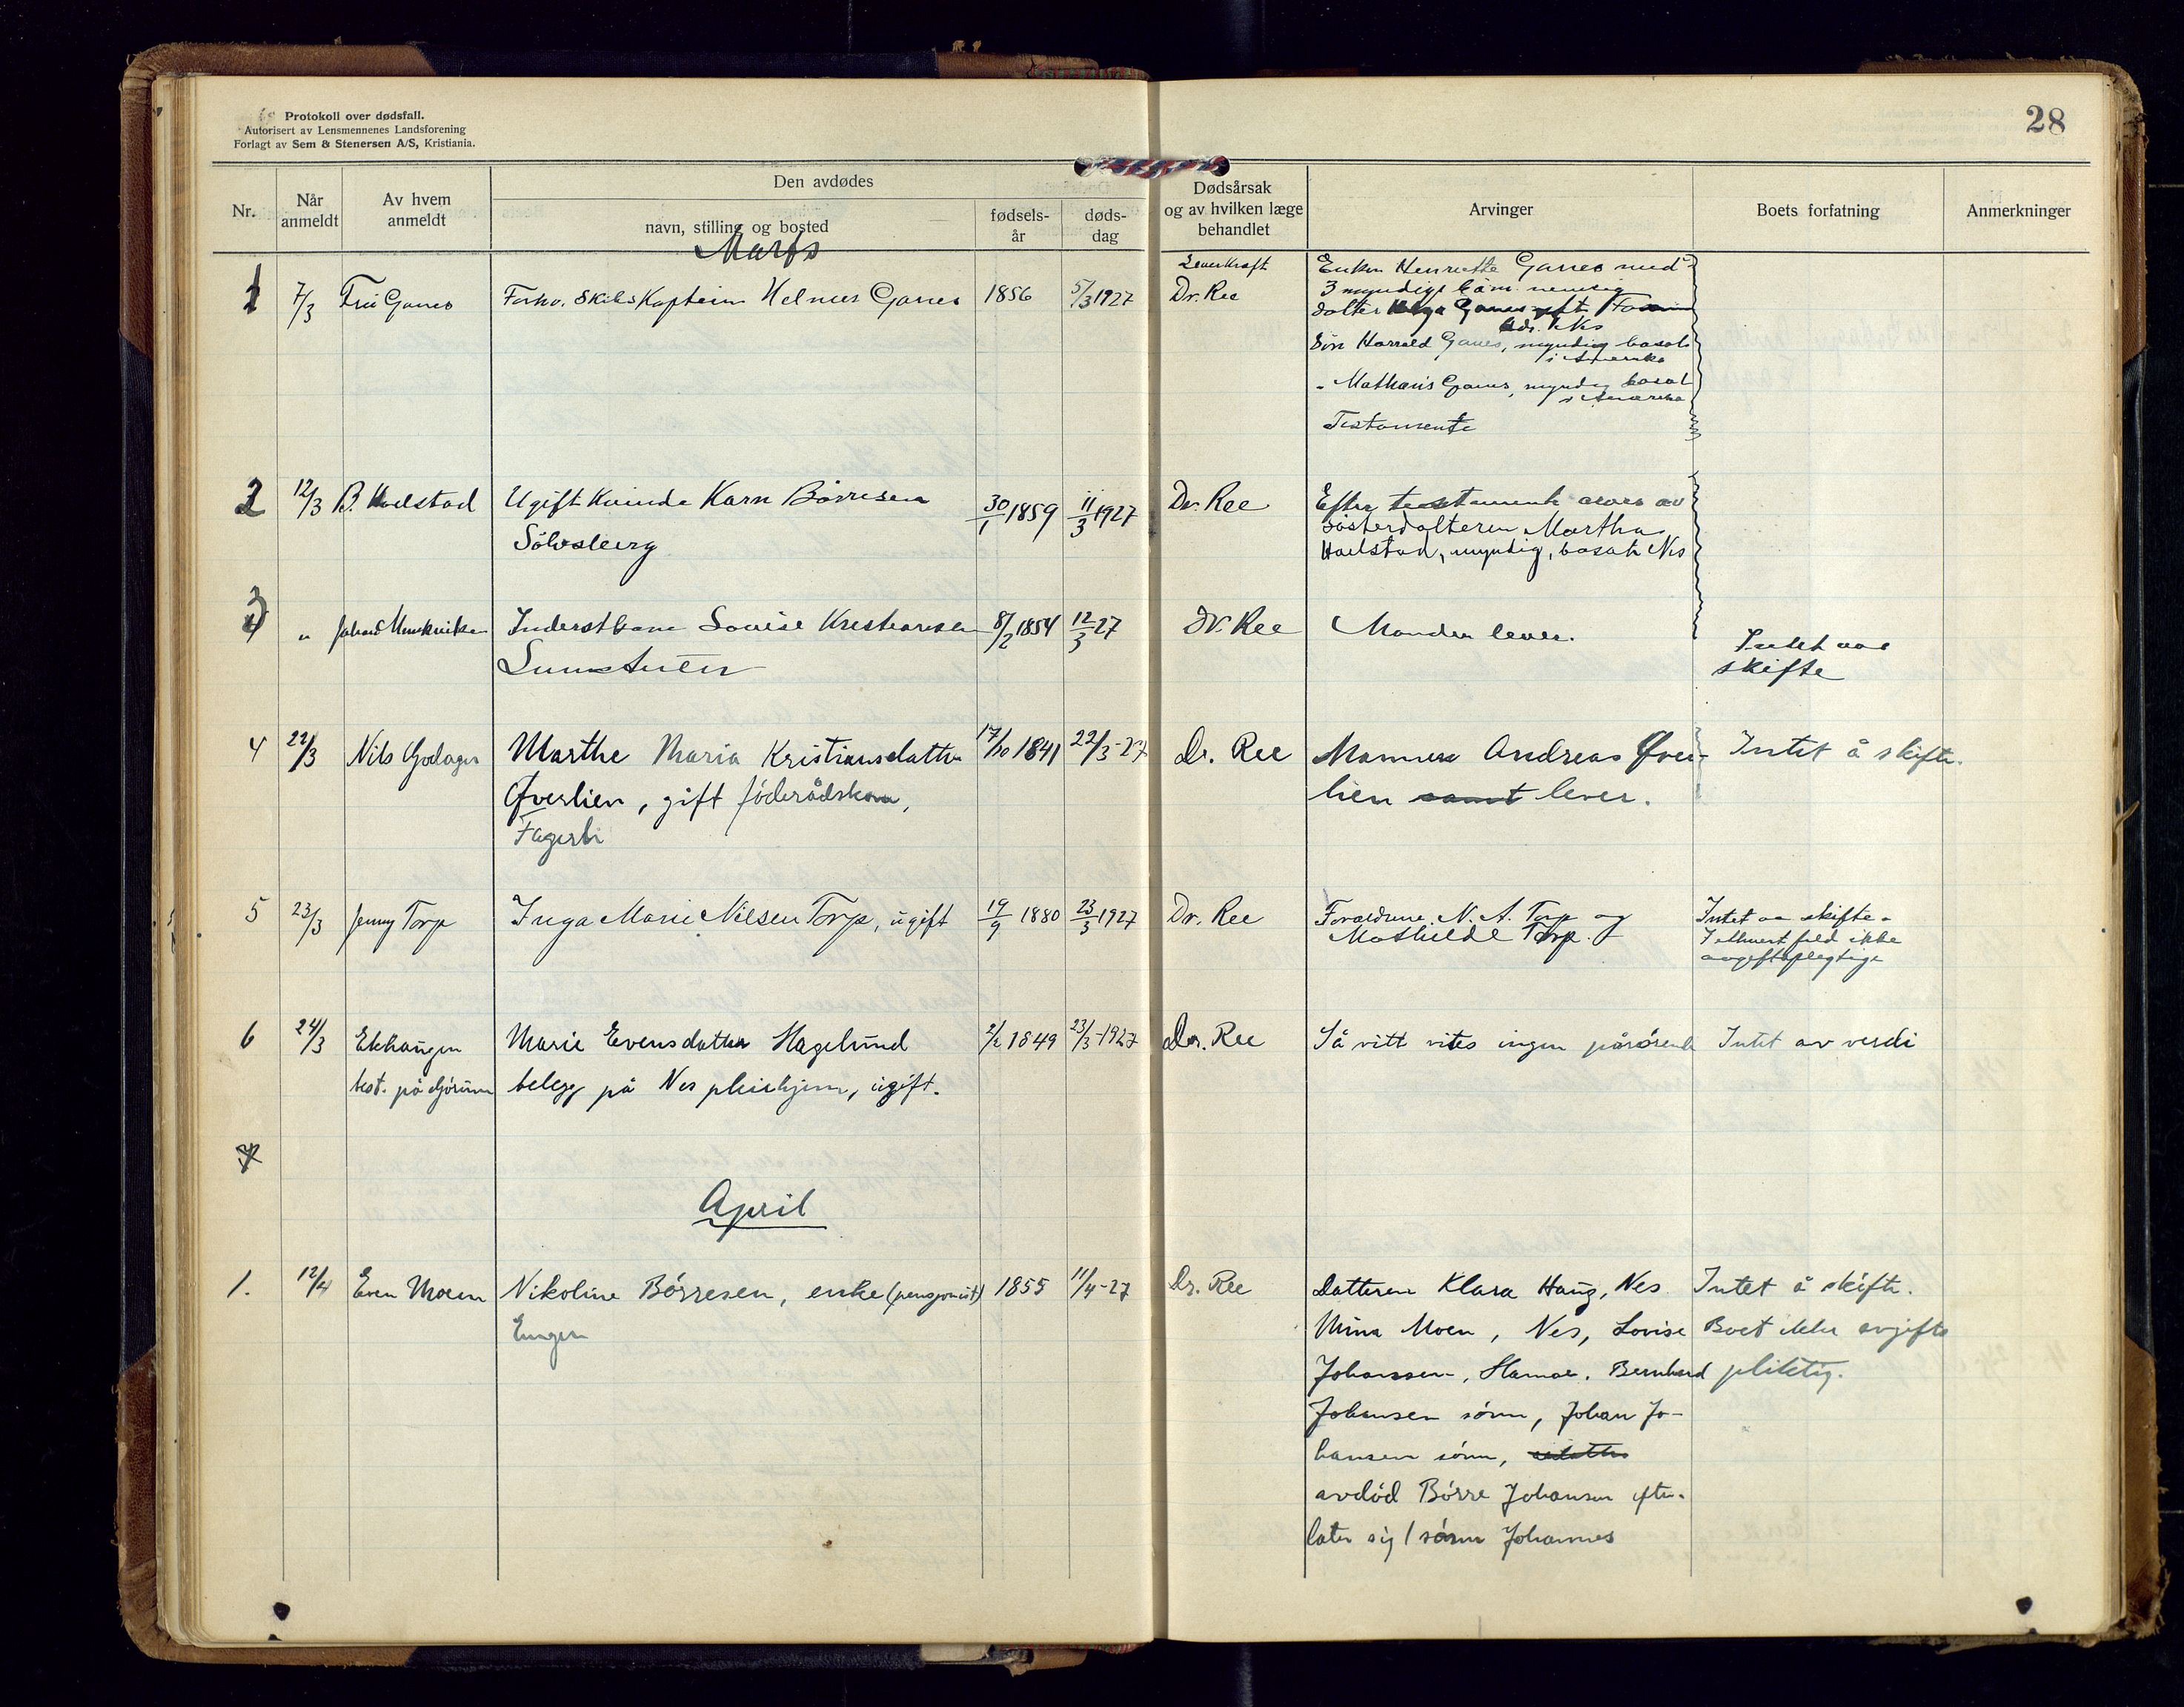 Protokoll over dødsfall.
Autorisert av Lensmennenes Landsforening
Forlagt av Sem & Stenersen A/S, Kristiania.
28
Nr.
Når anmeldt
Av hvem anmeldt
Den avdødes
navn, stilling og bosted
fødsels-år
døds-dag
Dødsårsak og av hvilken læge behandlet
Arvinger
Boets forfatning
Anmerkninger
Marts
1 7/3 Fru Ganes Forhv. Skibskaptein Helmer Ganes 1856 5/3 1927
Leverkræft
Dr. Ree
Enken Henriette Ganes med
3 myndige
datter Ganes gift
Søn Harrald Ganes, myndig bosat
i Amerika
- Mathæus Ganes, myndig bosat
i Amerika
Testamente
2 12/3 B. Haelstad Ugift Kvinde Karn Börresen 30/1 1859 11/3 1927 Dr. Ree
Sölvsberg
Efter testament av
Søsterdatteren Martha
Haelstad, myndig, bosat Nes
3 " Johan Inderstkone Lovise Kristiansen 8/2 1854 12/3 27 Dr. Ree Manden lever.
Lunstuen
Intet aa
skifte
4 22/3 Nils Godager Marthe Maria Kristiansdatter 17/10 1841 22/3-27 Dr. Ree Mannen Andreas Øver- Intet å skifte.
Øverlien, gift föderådskone, lien samt lever.
Fagerli
5 23/3 Jenny Torp Inga Marie Nilsen Torp, ugift 19/9 1880 23/3 1927 Dr. Ree Forældrene N. A. Torp og
Mathilde Torp.
Intet aa skifte.
I ethvert fald ikke
avgiftspligtig
6 24/3 Ekhaugen Marie Evensdatter Hagelund 2/2 1849 23/3-1927 Dr. Ree Så vitt vites ingen pårörende Intet av verdi
best. på Gjörum belegg på Nes pleiehjem, ugift.
7
April
1. 12/4 Even Moen Nikoline Börresen, enke (pensjonist) 1855 11/4-27 Dr. Ree Datteren Klara Haug, Nes Intet å skifte.
Engen Mina Moen, Nes, Lovise Boet ikke avgifts
Johanssen, Hamar. Bernhard pliktig.
Johansen sönn, Johan Jo-
hansen sönn,
avdöd Börre Johansen efter-
later sig 1 sönn Johannes